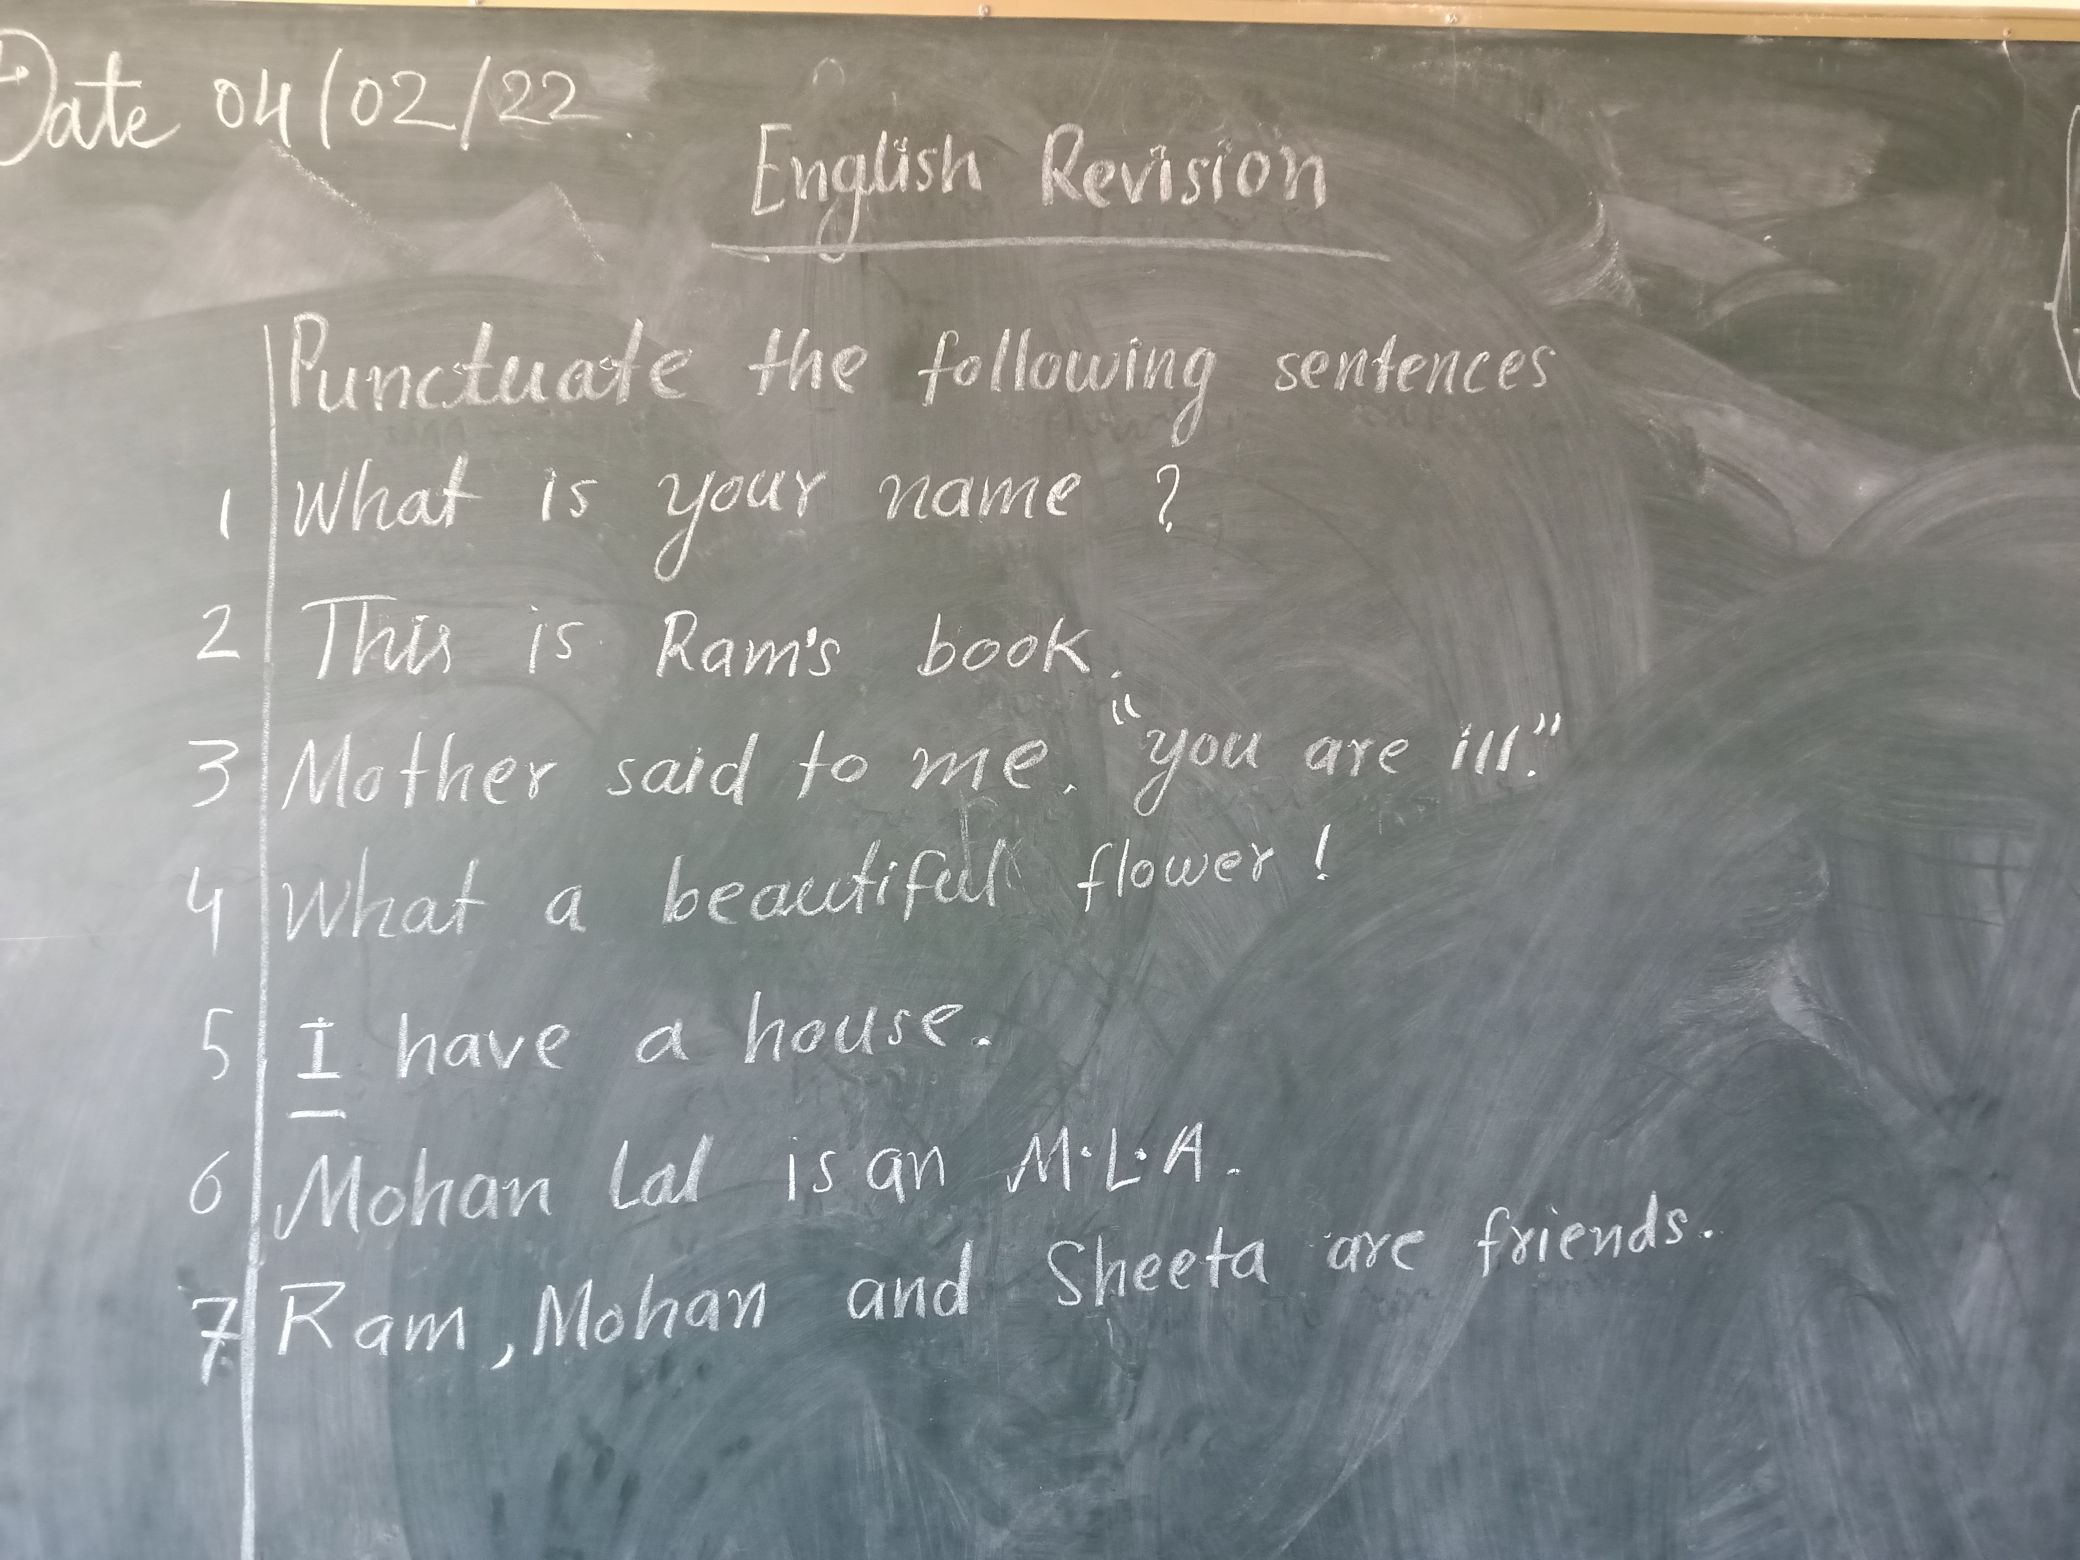 Date 04/02/22
English Revision
Punctuate the following sentences
1 What is your name ?
2 This is Ram's book.
3 Mother said to me, "you are ill."
4 What a beautiful flower !
5 I have a house.
6 Mohan Lal is an M.L.A.
7 Ram, Mohan and Sheeta are friends.